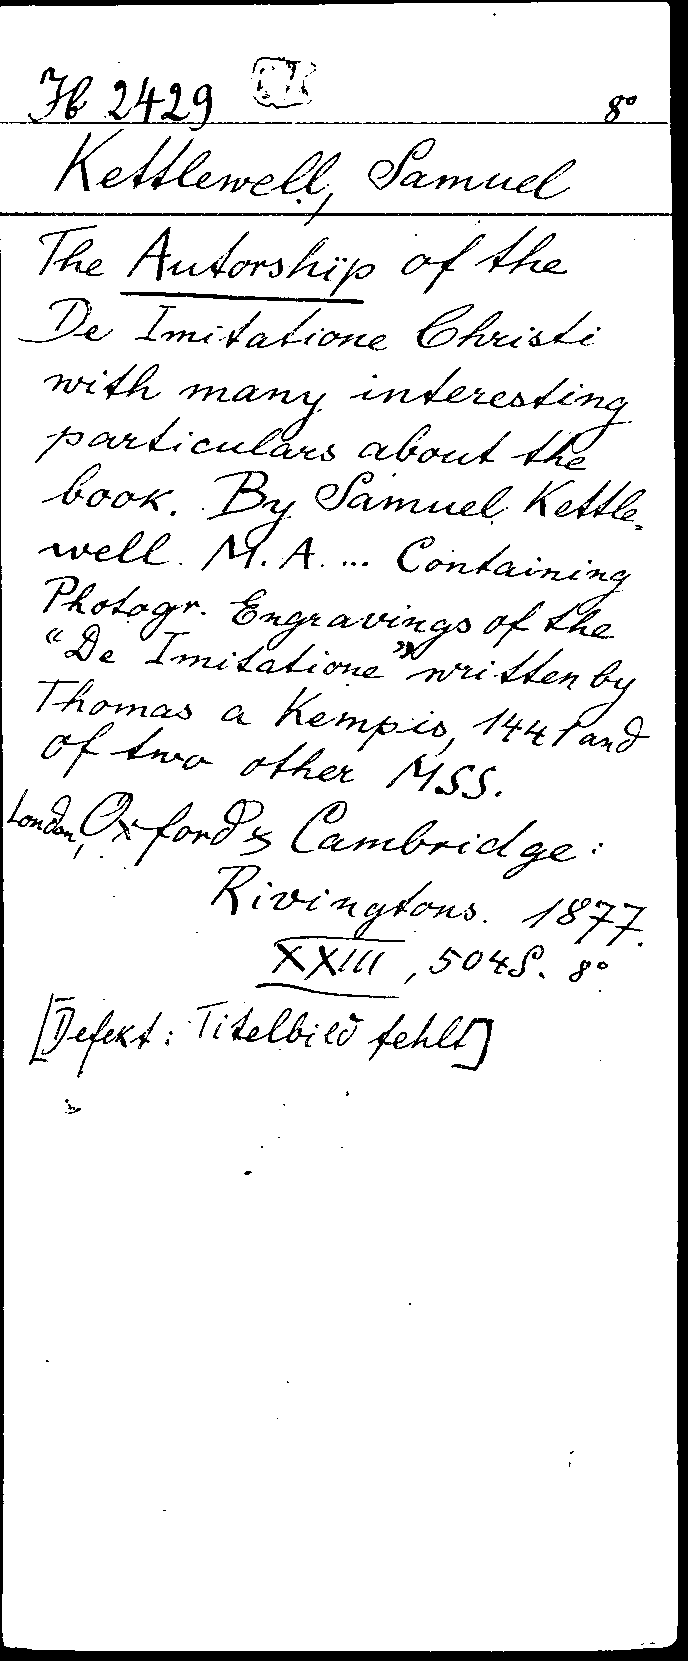 Jb 2429 8°
Kettlewell, Samuel
The Autorship of the
De Imitatione Christi
with many interesting
particulars about the
book. By Samuel Kettle-
well. M. A. ... Containing
Photogr. Engravings of the
"De Imitatione" written by
Thomas a Kempis, 1441 and
of two other MSS.
London, Oxford & Cambridge:
Rivingtons. 1877.
XXIII, 504 S. 8°
[Defekt: Titelbild fehlt]